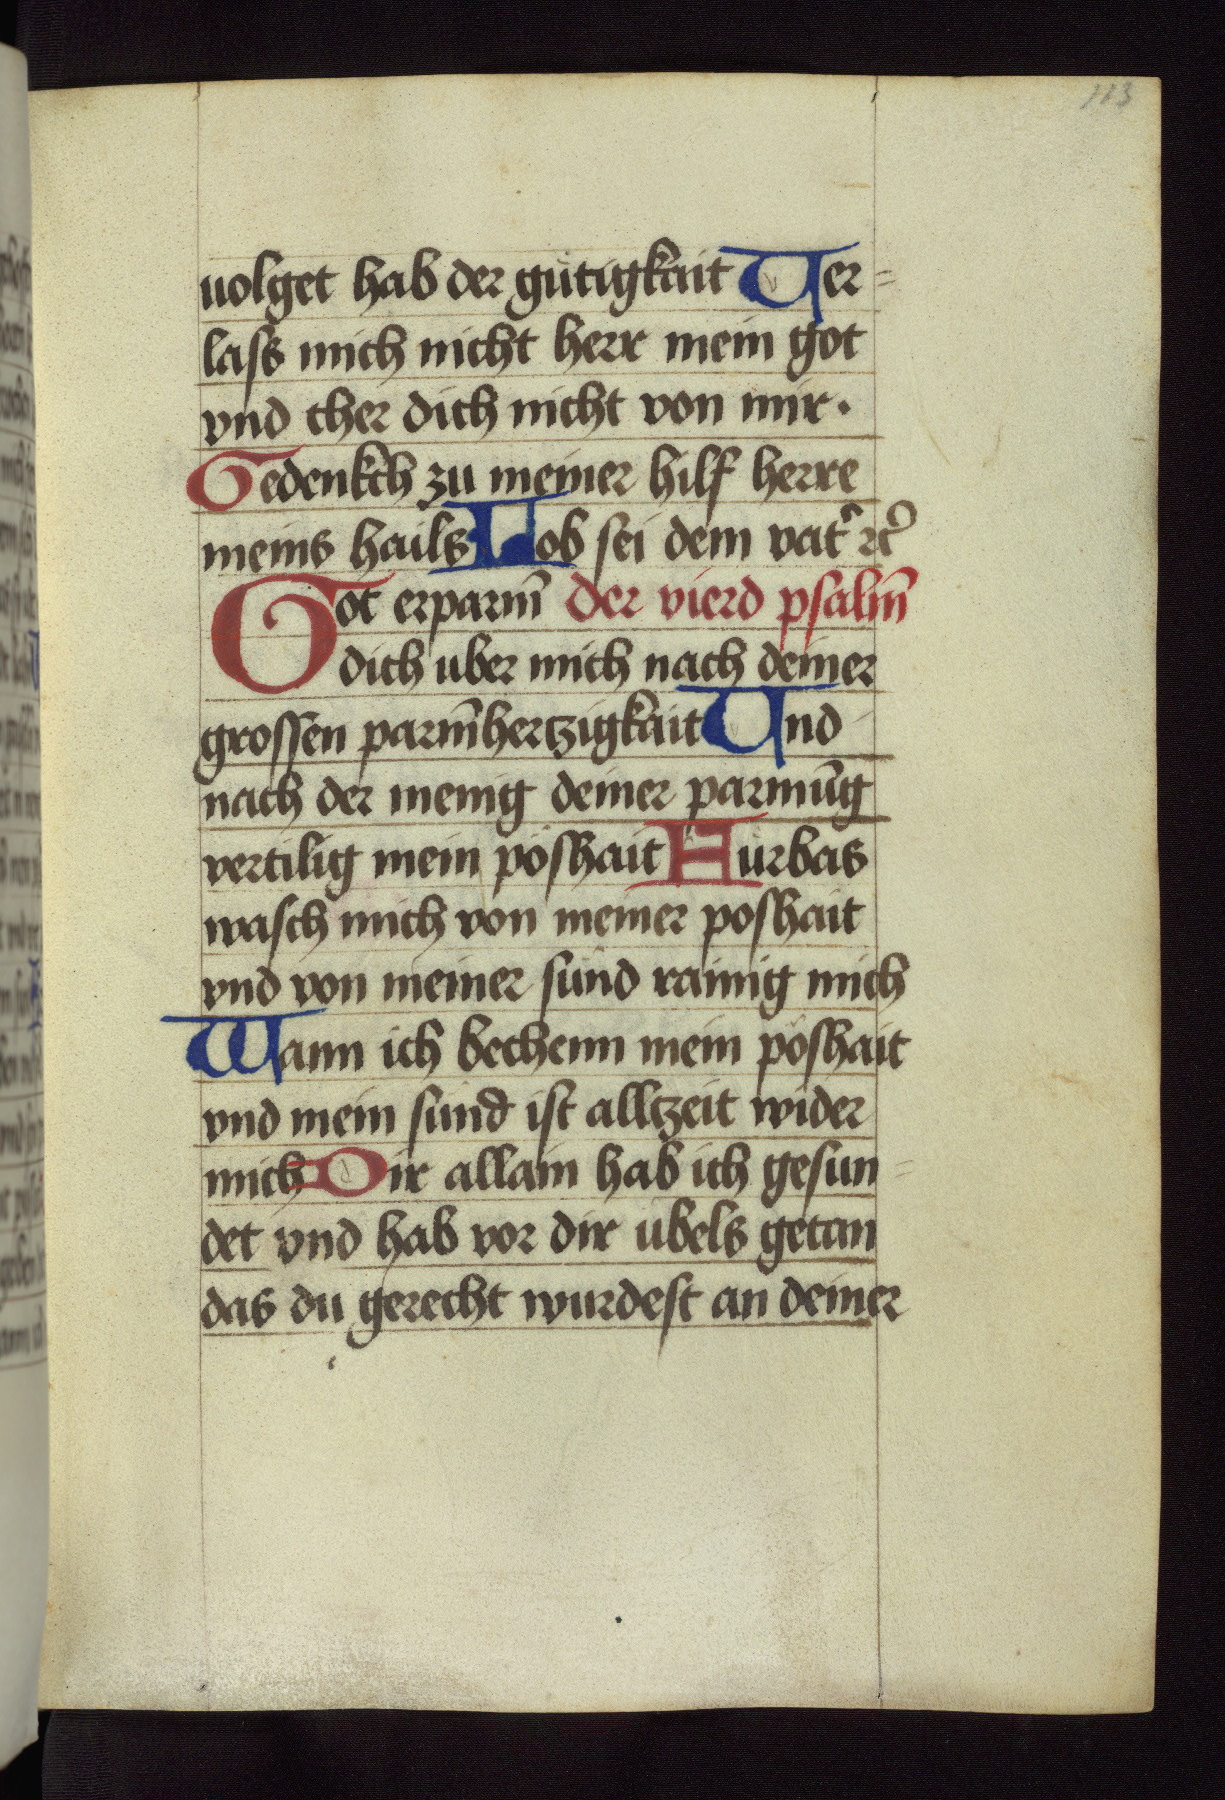 113
uolget hab der gütigkait Ver=
lass mich nicht herr mein got
vnd cher dich nicht von mir.
Gedenkch zu meiner hilf herre
meins hails Lob sei dem vat&#x27; ꝛcꝰ
Got erparm̄ der vierd psalm̄
dich uber mich nach deiner
grossen parm̄hertzigkait Vnd
nach der menig deiner parmūg
vertilig mein pöshait Hürbas
wasch mich von meiner poshait
vnd von meiner sünd rainig mich
Wann ich bechenn mein pöshait
vnd mein sünd ist alltzeit wider
mich Dir allain hab ich gesun=
det vnd hab vor dir übels getan
das du gerecht wurdest an deiner